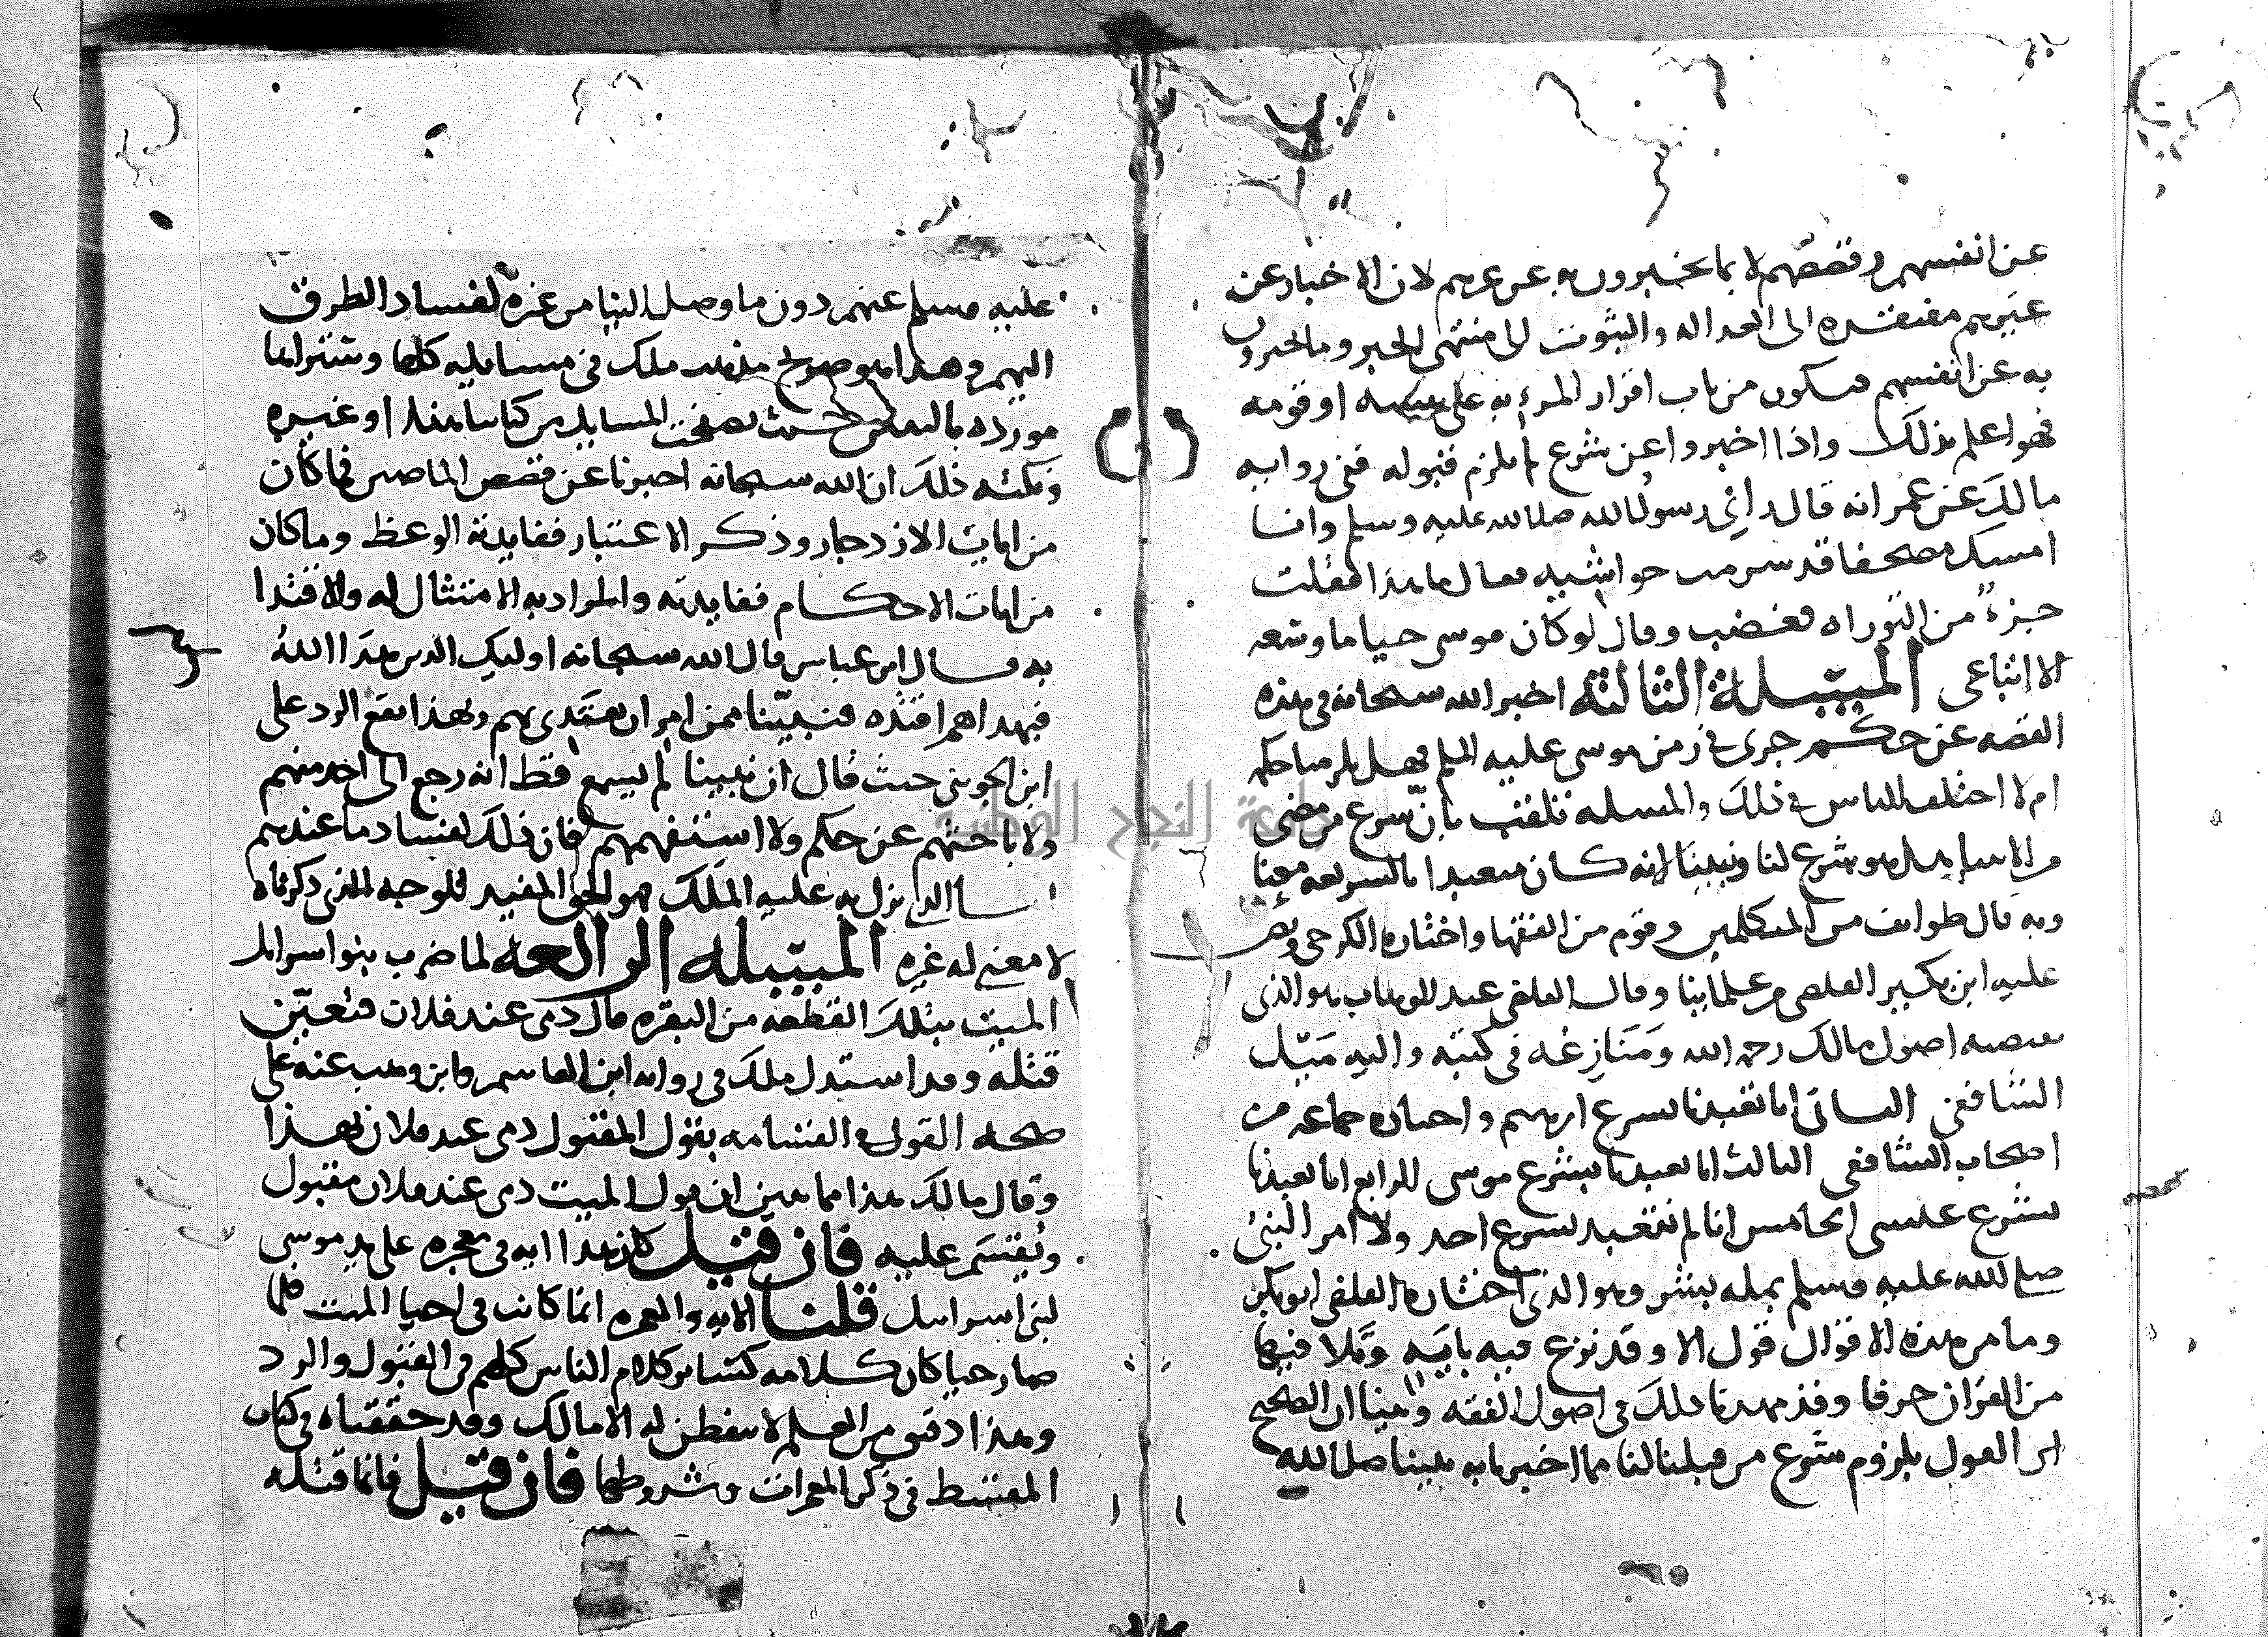 عن انفسهم وقصصهم لا بما يخبرون به عن غيرهم لان الاخبار عن
غيرهم مفتقرة الى العدالة والثبوت الى منتهى الخبر وما يخبرون
به عن انفسهم فيكون من باب اقرار المرء به على نفسه او قومه
فهو اعلم بذلك واذا اخبروا عن شرع لم يلزم قبوله ففي رواية
مالك عن عمر انه قال راني رسول الله صلى الله عليه وسلم وانا
امسك مصحفا قد تشرمت حواشيه فقال ما هذا فقلت
جزء من التوراة فغضب وقال لو كان موسى حيا ما وسعه
الا اتباعي المسئلة الثالثة اخبر الله سبحانه في هذه
القصه عن حكم جرى في زمن موسى عليه السلم فهل يلزمنا حكمه
ام لا اختلف الناس في ذلك والمسله تلقب بان شرع من مضى
من الانبيا هل هو شرع لنا ونبينا انه كان متعبدا بالشريعة معنا
وبه قال طوايف من المتكلمين وقوم من الفقها واختاره الكرخي ونص
عليه ابن بكير القاضي من علماينا وقال القاضي عبد الوهاب هو الذي
تقتضيه اصول مالك رحمه الله ومنازعه في كتبه واليه ميل
الشافعي الثاني انا تعبدنا بشرع ابرهيم واختاره جماعه من
اصحاب الشافعي الثالث انا تعبدنا بشرع موسى الرابع انا تعبدنا
بشرع عيسى الخامس انا لم نتعبد بشرع احد ولا امر النبي
صلى الله عليه وسلم بمله بشر وهو الذي اختاره القاضي ابو بكر
وما من هذه الاقوال قول الا وقد نزع فيه بايه وتلا فيها
من القران حرفا وقد مهدنا ذلك في اصول الفقه وبينا ان الصحيح
ان القول بلزوم شرع من قبلنا لنا مما اخبرنا به نبينا صلى الله
عليه وسلم عنهم دون ما وصل الينا من غيره لفساد الطرق
اليهم وهذا هو صريح مذهب ملك في مسايله كلها وستراها
مورده بالتبيين حيث تصفحت المسايل من كتابنا هذا او غيره
ونكته ذلك ان الله سبحانه اخبرنا عن قصص الماضين فما كان
من ايات الازدجار وذكر الاعتبار ففايدته الوعظ وما كان
من ايات الاحكام ففايدته والمراد به الامتثال له والاقتدا
به قال ابن عباس قال الله سبحانه اوليك الذين هدا الله
فبهداهم اقتده فنبينا ممن امر ان يقتدى بهم وبهذا يقع الرد على
ابن الجويني حيث قال ان نبينا لم يسمع قط انه رجع الى احد منهم
ولا باحثهم عن حكم ولا استفهمهم فان ذلك لفساد ما عندهم
اما الذي نزل به عليه الملك فهو الحق المفيد للوجه الذي ذكرناه
لا معنى له غيره المسئله الرابعه لما ضرب بنو اسرايل
الميت بتلك القطعه من البقره قال دمي عند فلان فتعين
قتله وقد استدل ملك في روايه ابن القاسم وابن وهب عنه على
صحه القول في القسامه بقول المقتول دمي عند فلان بهذا
وقال مالك هذا مما يبين ان قول الميت دمي عند فلان مقبول
ويقسم عليه فان قيل كان هذا ايه في معجزه على يد موسى
لبني اسرايل قلنا الايه والمعجزه انما كانت في احيا الميت فلما
صار حيا كان كلامه كساير كلام الناس كلهم في القبول والرد
وهذا دقيق من العلم لا يتفطن له الا مالك وقد حققناه في كتاب
المقسط في ذكر المعجزات وشروطها فان قيل فانما قتله